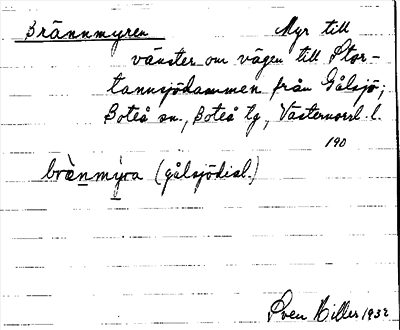 Brännmyren Myr till
vänster om vägen till Stor-
tannsjödammen från Gålsjö,
Boteå sn., Boteå tg, Västernorrl. l.
190
brànmýra (gålsjödial.)
Sven Hiller 1932